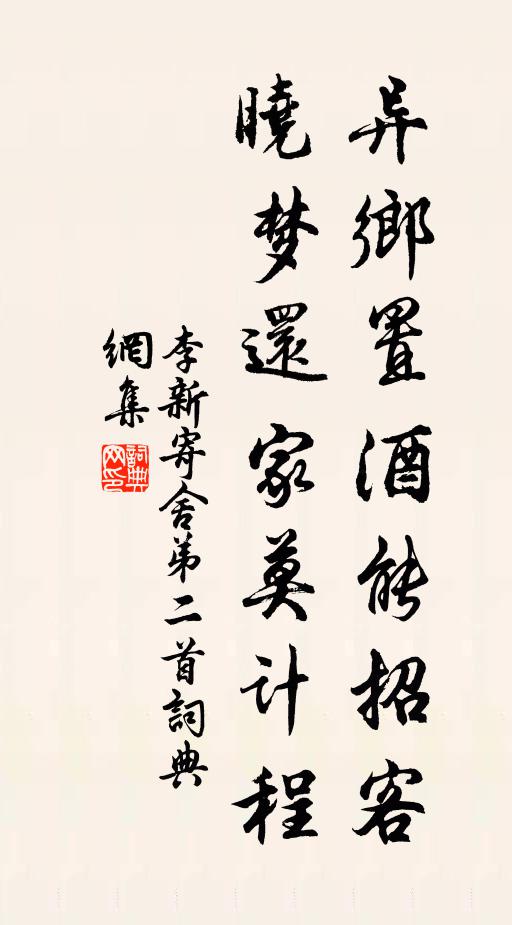 异鄉置酒能招客
曉梦還家莫计程
李新寄舍弟二首詞典
網集
詞典
网印